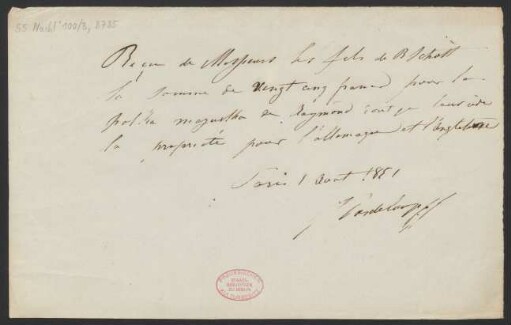 55 Nachl 100/B, 8785
Reçu de Messieurs les fils de B Schott
la somme de vingt cinq francs pour la
polka mazurka de Raymond dont je leur cède
la propriété pour l'allemagne et l'Angleterre
Paris 1 Aout 1851